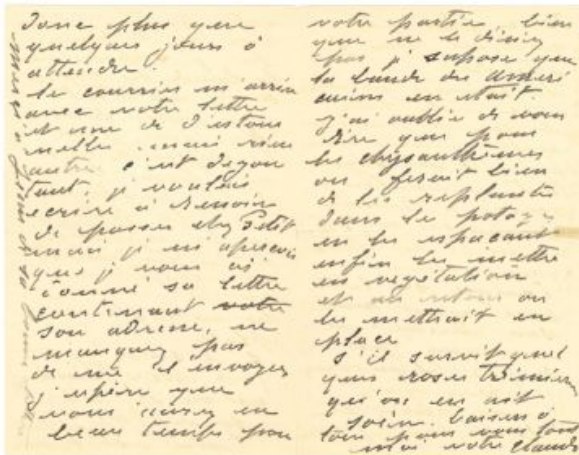 donc plus que
quelques jours à
attendre.
le courrier m'arrive
avec votre lettre
et une de d'estour
nelles mais rien
autre c'est dégou
tant, je voulais
ecrire à Renoir
de passer chez Petit
mais je m'aperçois
que je vous ai
donné sa lettre
contenant votre
son adresse, ne
manquez pas
de me l'envoyer
j'espère que
vous aurez eu
beau temps pour
votre partie bien
que ne le disiez
pas je supose que
la bande des améri
cains en était.
j'ai oublié de vous
dire que pour
les chrysanthèmes
on ferait bien
de les replanter
dans le potager
en les espaçant
enfin les mettre
en vegetation
et au retour on
les mettrait en
place
s'il survit quel
ques roses trémières
qu'on en ait
soin. baisers à
tous pour vous tout
mon votre claude
merci à